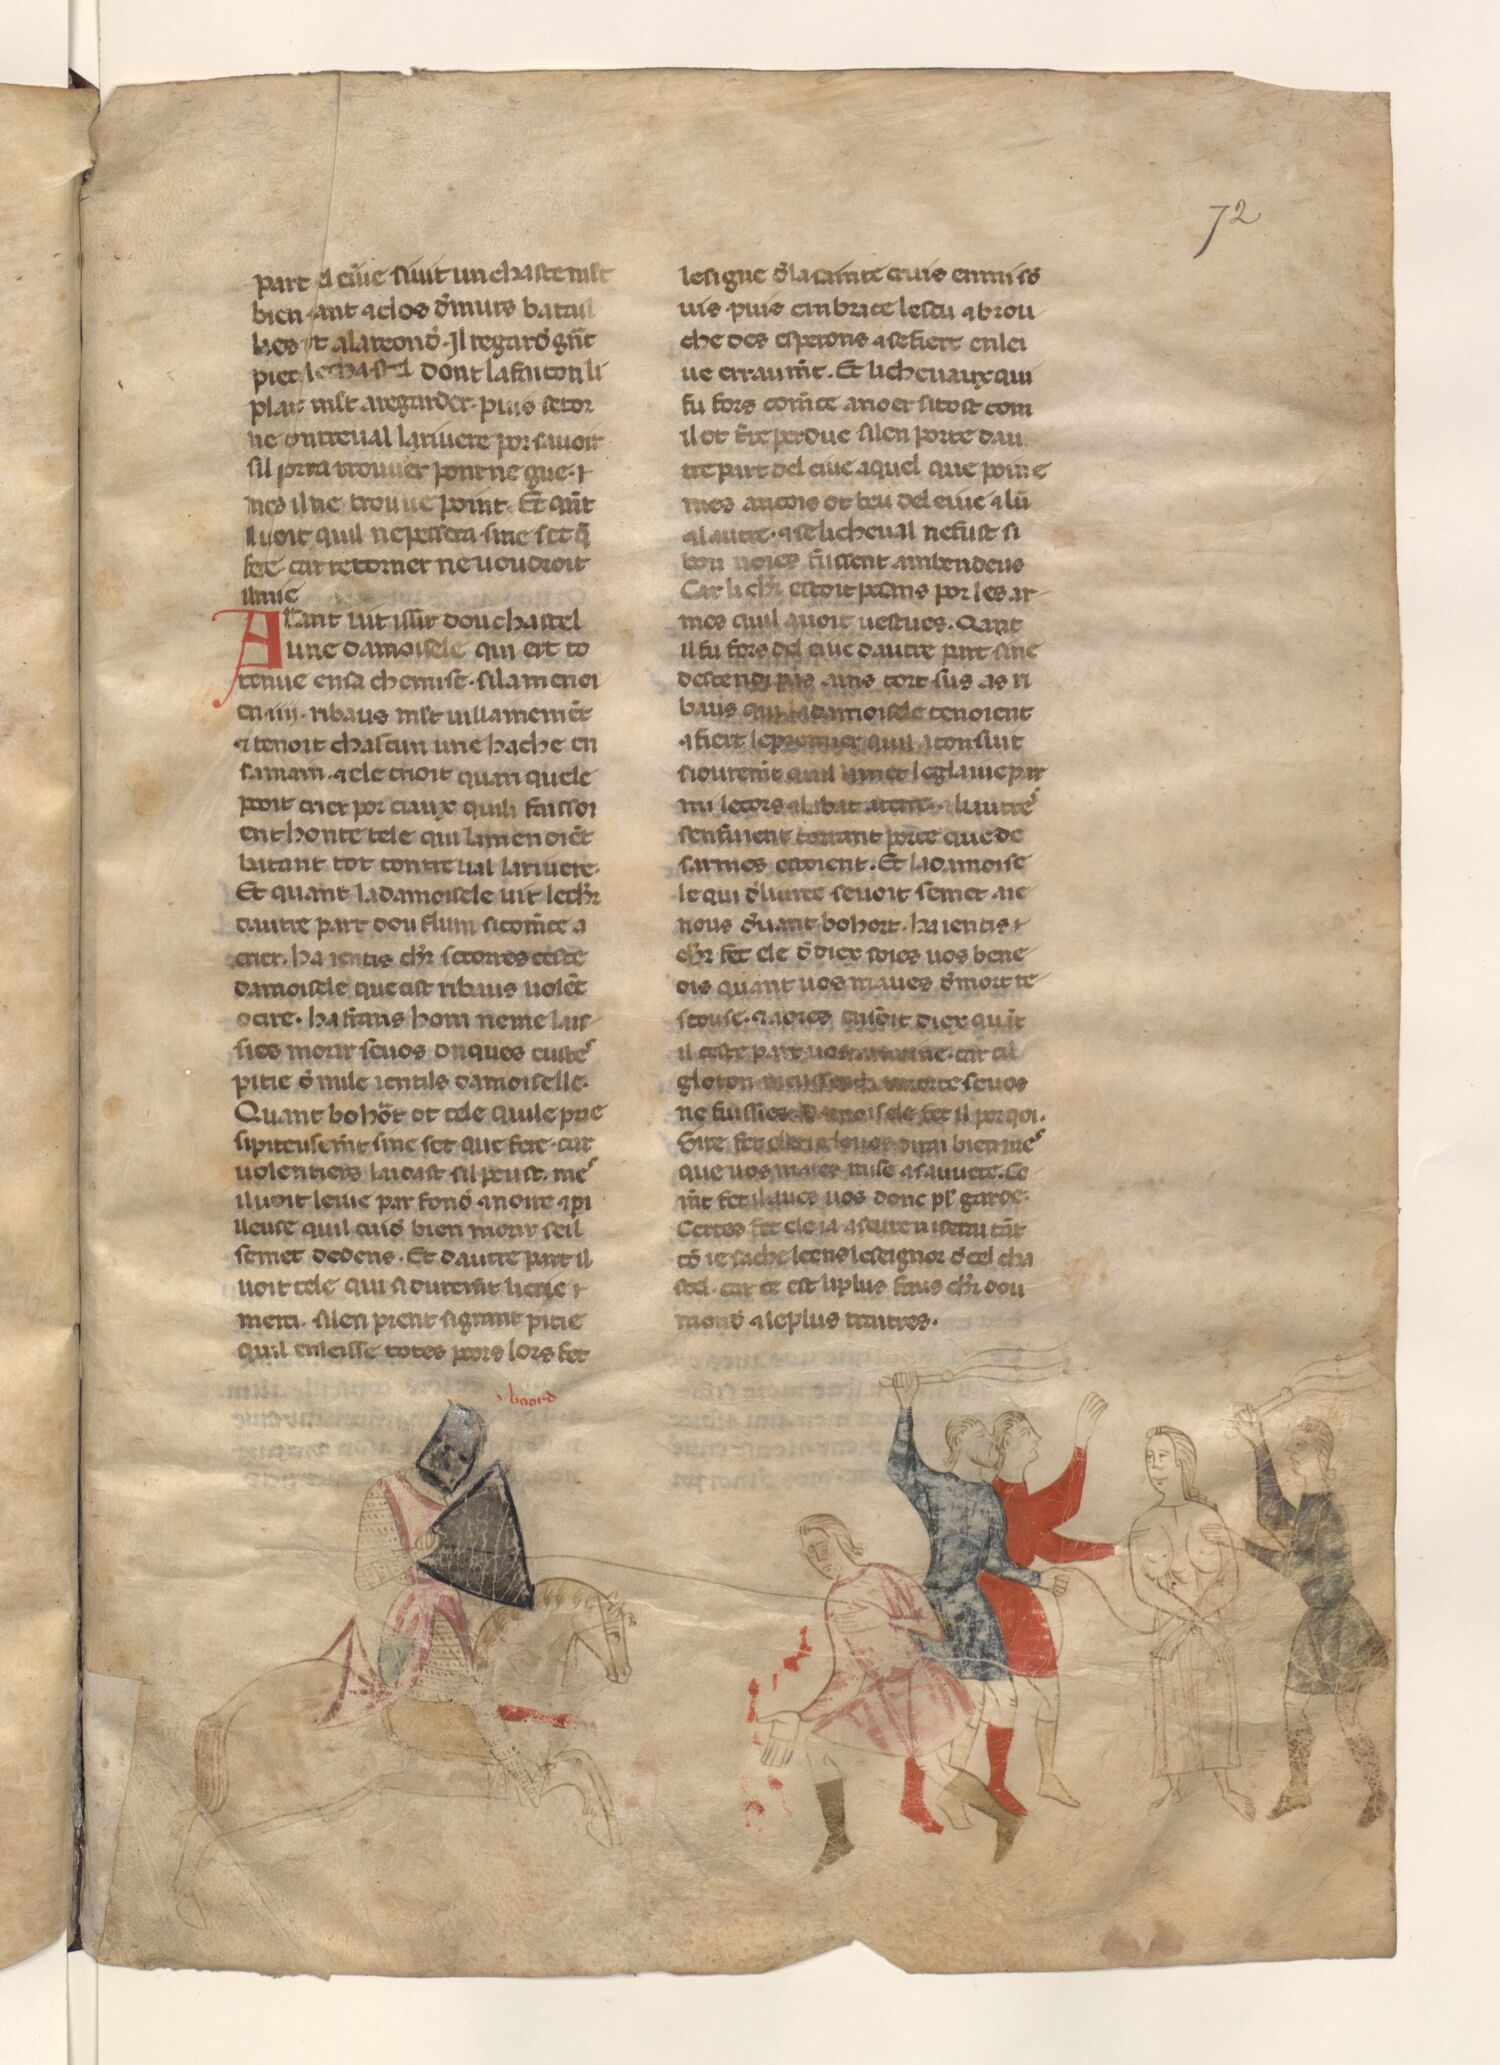 72
part del eiue siuit un chastel mlt
bien seant ⁊ clos d̄ murs batail
lies ⁊ a la reond̄. Il regard̄ gn̄t
piece le chastel dont la faiconli
plait mlt a regarder. puis se tor
ne contreual la riuiere por sauoir
sil porra trouuer pont ne gue.
mes il ne trouue point. Et qn̄t
il uoit quil ne passera. si ne set q̄
fere car retorner ne uoudroit
il mie
Atant uit issir dou chastel
une damoisele qui ert to
te nue en sa chemise. si lamenoi
en .iiii. ribaus mlt uillainemēt
⁊ tenoit chascun une hache en
sa main. ⁊ ele crioit quan quele
pooit crier por ciaux quili faissoi
ent honte tele qui lamenoiēt
batant tot contreual la riuiere.
Et quant la damoisele uit le chr̄
dautre part dou flum si comēce a
crier. ha ientis chr̄ secorres ceste
damoisele que cist ribaus uolēt
ocire. ha frans hom ne me lais
sies morir se uos onques eustes
pitie d̄ nule ientils damoiselle.
Quant bohort ot cele quile prie
si piteusemt si ne set que fere. car
uolentiers li aidast sil peust. mes
il uoit leiue parfond̄ ⁊ noire ⁊ pi
lleuse quil cuid̄ bien morir seil
se met dedens. Et dautre part il
uoit cele qui si durement li crie
merci. si len prent si grant pitie
quil enleisse totes poors lors fet
le signe d̄ la sainte crois enmi sō
uis. puis embrace lescu ⁊ brou
che des esperons ⁊ se fiert en lei
ue erraumt. Et li cheuaux qui
fu fors comēce a noer si tost com
il ot tr̄e perdue si len porte dau
tre part del eiue a quel que poine
mes ancois ot beu del eiue ⁊ lū
⁊ lautre. ⁊ se li cheual ne fust si
bon noies fussent ambendeus
Car li chr̄ estoit pesans por les ar
mes quil auoit uestues. Qant
il fu fors del eiue dautre part si ne
descendi pas ains cort sus as ri
baus qui la damoisele tenoient
⁊ fiert le premier quil aconsiut
si durement quil li met le glaiue par
mi le cors ⁊ labat a terre. ⁊ li autre
senfuient corrant porce que de
sarmes estoient. Et la damoise
le qui deliuree se uoit se met a ie
nous d̄uant bohort. ha ientis
chr̄ fet ele d̄ diex soies uos bene
ois quant uos maues d̄ mort re
scouse. ⁊ aores en soit diex quāt
il ceste part uos amaine. car cil
gloton meussent morte se uos
ne fussies. Damoisele fet il por qoi.
Sire fet ele ie le uos dirai bien mes
que uos maies mise a sauuete. Co
mt fet il aues uos donc pl̄ garde.
Certes fet ele ia aseure ni serai tāt
cō ie sache leens le seignor d̄ cel cha
stel. car ce est li plus faus chr̄ dou
mond̄ ⁊ le plus traitres.
boord